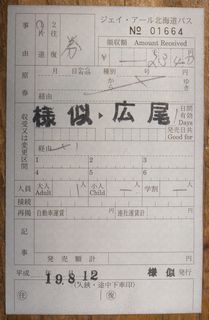 ジェイ・アール北海道バス
事由
往復
券
No 01664
領収額 Amount Received
原券
月日
種別
号
円
経由
から
ゆき
収受又は変更区間
様似 - 広尾
日間有効 Days
発売日共 Good for
経由
1 2 3 4
5 6 7 8
人員
大人 Adult 1
小人 Child
学割
接続
再掲
自動車運賃
連社運賃計
記事
発売額計
円
平成 19.8.12 様似 発行
(入鋏・途中下車印)
(往)
(復)